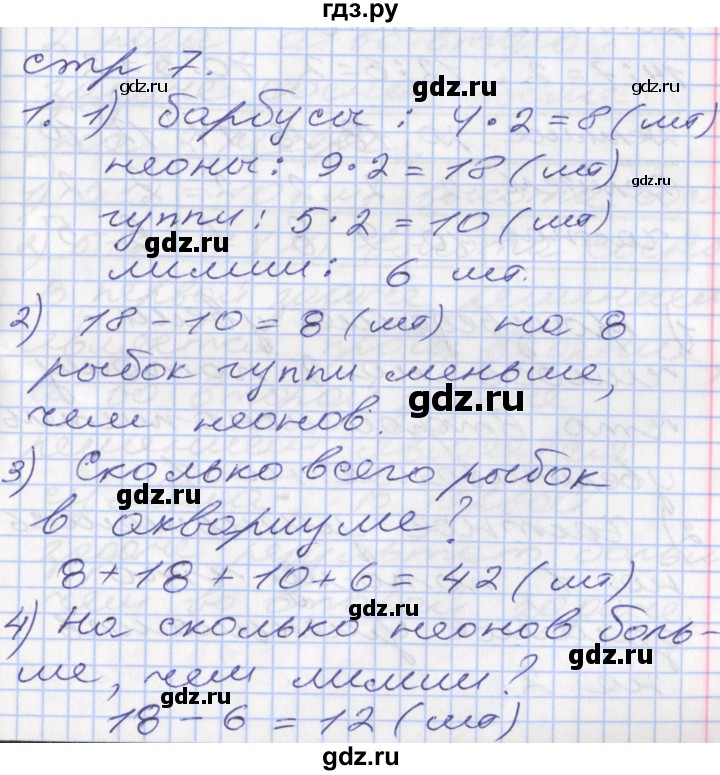 гдз.ру
стр 7.
gdz.ru
1. 1) барбусы: 4·2=8(шт)
неоны: 9·2=18(шт)
gdz.ru
gdz.ru
гуппи: 5·2=10(шт)
gdz.ru
gdz.ru
лилии: 6 шт.
2) 18-10=8(шт) на 8
gdz.ru
gdz.ru
рыбок гуппи меньше,
gdz.ru
чем неонов.
3) Сколько всего рыбок
gdz.ru
gdz.ru
в аквариуме?
8+18+10+6=42(шт)
gdz.ru
4) На сколько неонов боль-
gdz.ru
ше, чем лилии?
gdz.ru
18-6=12(шт)
gdz.ru
gdz.ru